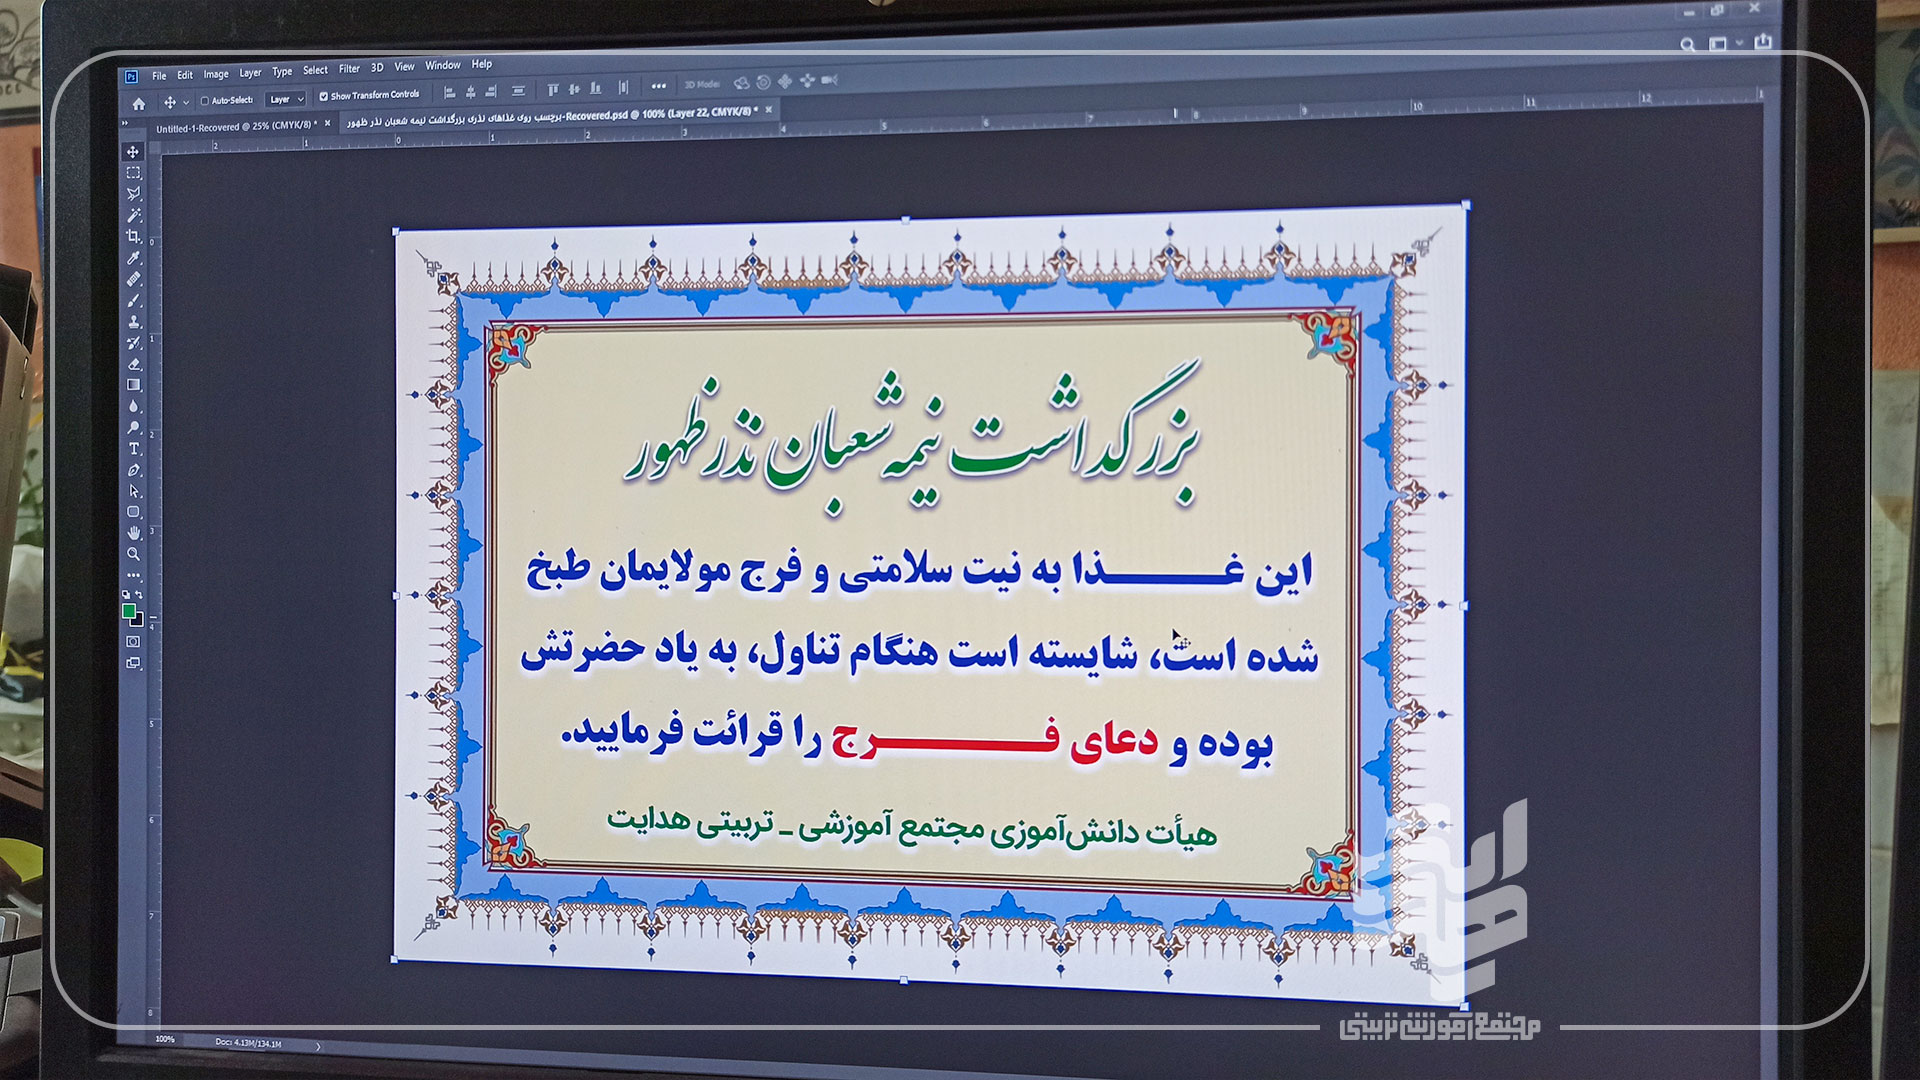 File Edit Image Layer Type Select Filter 3D View Window Help
Auto-Select: Layer Show Transform Controls 3D Mode:
Untitled-1-Recovered @ 25% (CMYK/8) * × برچسب روی غذاهای نذری بزرگداشت نیمه شعبان نذر ظهور-Recovered.psd @ 100% (Layer 22, CMYK/8) * ×
2 1 0 1 2 3 4 5 6 7 8 9 10 11 12
بزرگداشت نیمه شعبان نذر ظهور
این غـــــــذا به نیت سلامتی و فرج مولایمان طبخ
شده است، شایسته است هنگام تناول، به یاد حضرتش
بوده و دعای فـــــــــرج را قرائت فرمایید.
هیأت دانش‌آموزی مجتمع آموزشی ـ تربیتی هدایت
هدایت
مجتمع آموزشی تربیتی
100% Doc: 4.13M/134.1M